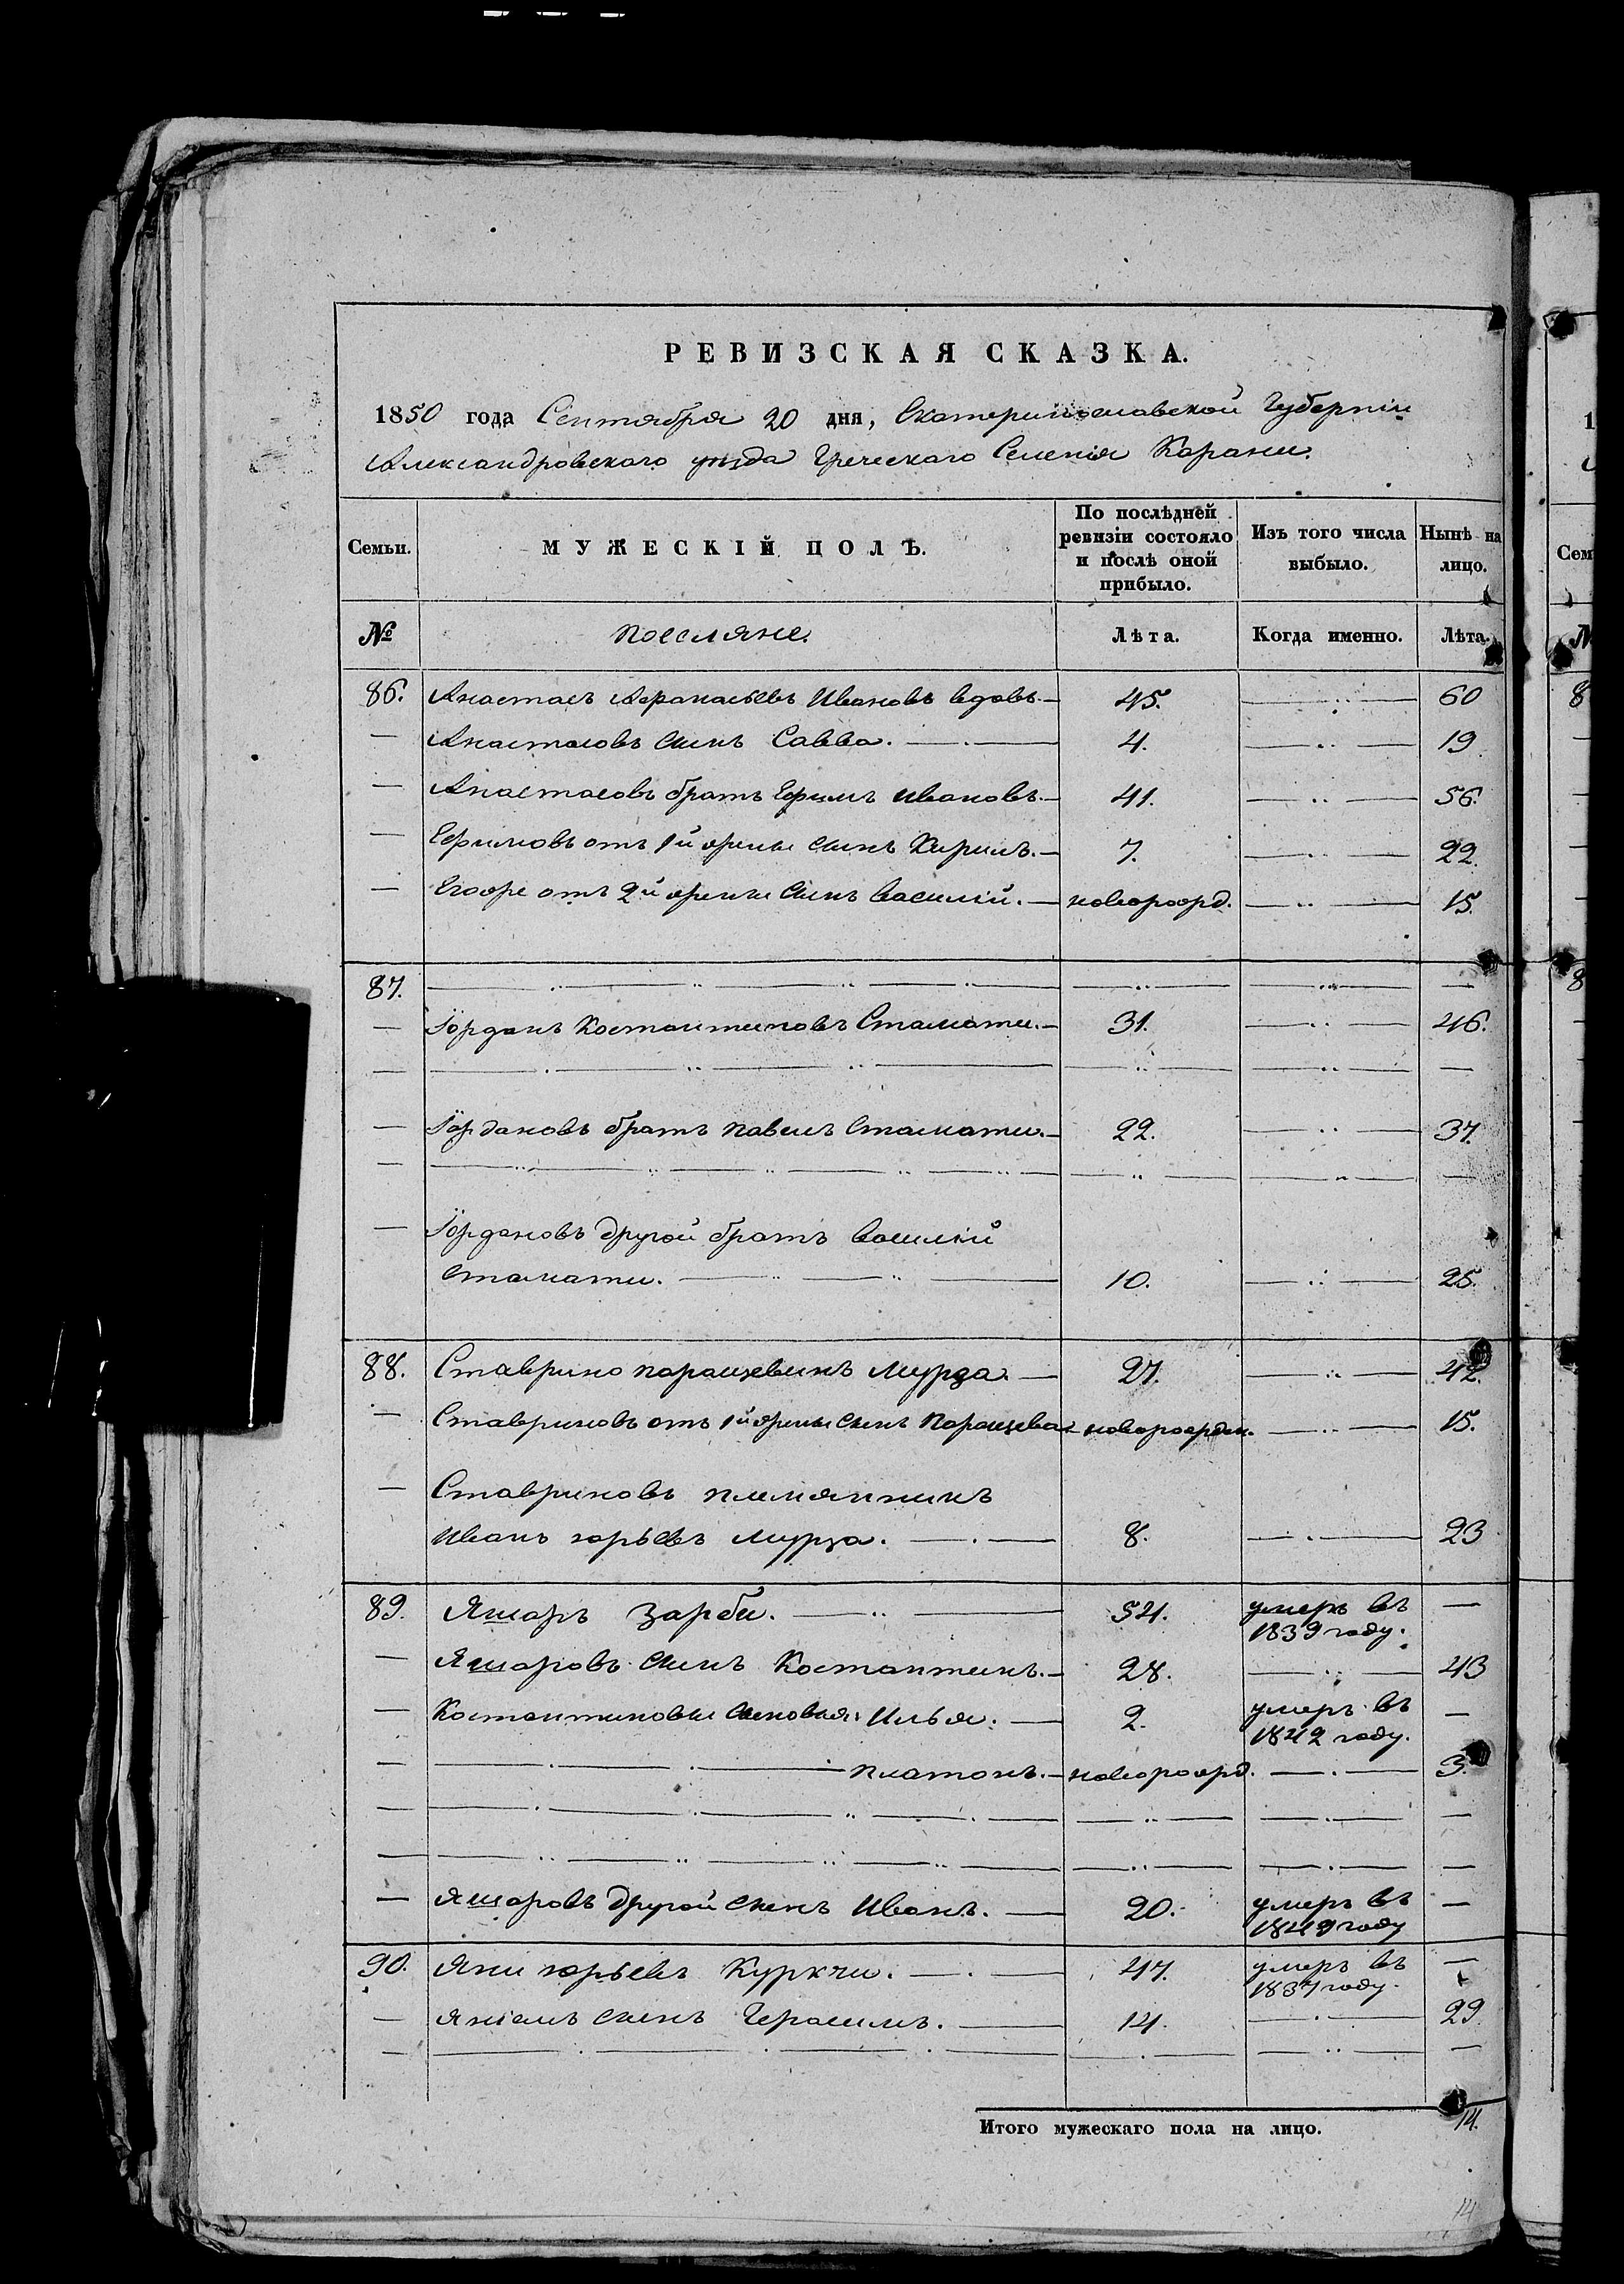 РЕВИЗСКАЯ СКАЗКА.
1850 года Сентября 20 дня, Екатеринославской Губерніи
Александровскаго уѣзда Греческаго Селенія Карани.
Семьи. МУЖЕСКІЙ ПОЛЪ. По послѣдней ревизіи состояло и послѣ оной прибыло. Изъ того числа выбыло. Нынѣ на лицо.
№ Поселяне. Лѣта. Когда именно. Лѣта.
86. Анастасъ Афанасьевъ Ивановъ вдовъ. 45. 60
Анастасовъ сынъ Савва. 4. 19
Анастасовъ братъ Ефимъ Ивановъ. 41. 56.
Ефимовъ отъ 1й жены сынъ Кирилъ. 7. 22.
Егоже отъ 2й жены сынъ Василій. новорожд. 15.
87.
Іорданъ Костантиновъ Стамати. 31. 46.
Іордановъ братъ Павелъ Стамати. 22. 37.
Іордановъ другой братъ Василій
Стамати. 10. 25.
88. Ставрино Паращевинъ Мурза. 27. 42.
Ставриновъ отъ 1й жены сынъ Паращева новорожден. 15.
Ставриновъ племянникъ
Иванъ Юрьевъ Мурза. 8. 23
89. Яшаръ Зарби. 54. умеръ въ 1839 году.
Яшаровъ сынъ Костантинъ. 28. 43
Костантиновы сыновья: Илья. 2. умеръ въ 1842 году.
Платонъ. новорожд. 3.
Яшаровъ другой сынъ Иванъ. 20. умеръ въ 1849 году
90. Яни Юрьевъ Куркчи. 47. умеръ въ 1837 году.
Яніевъ сынъ Герасимъ. 14. 29.
Итого мужескаго пола на лицо. 14.
14